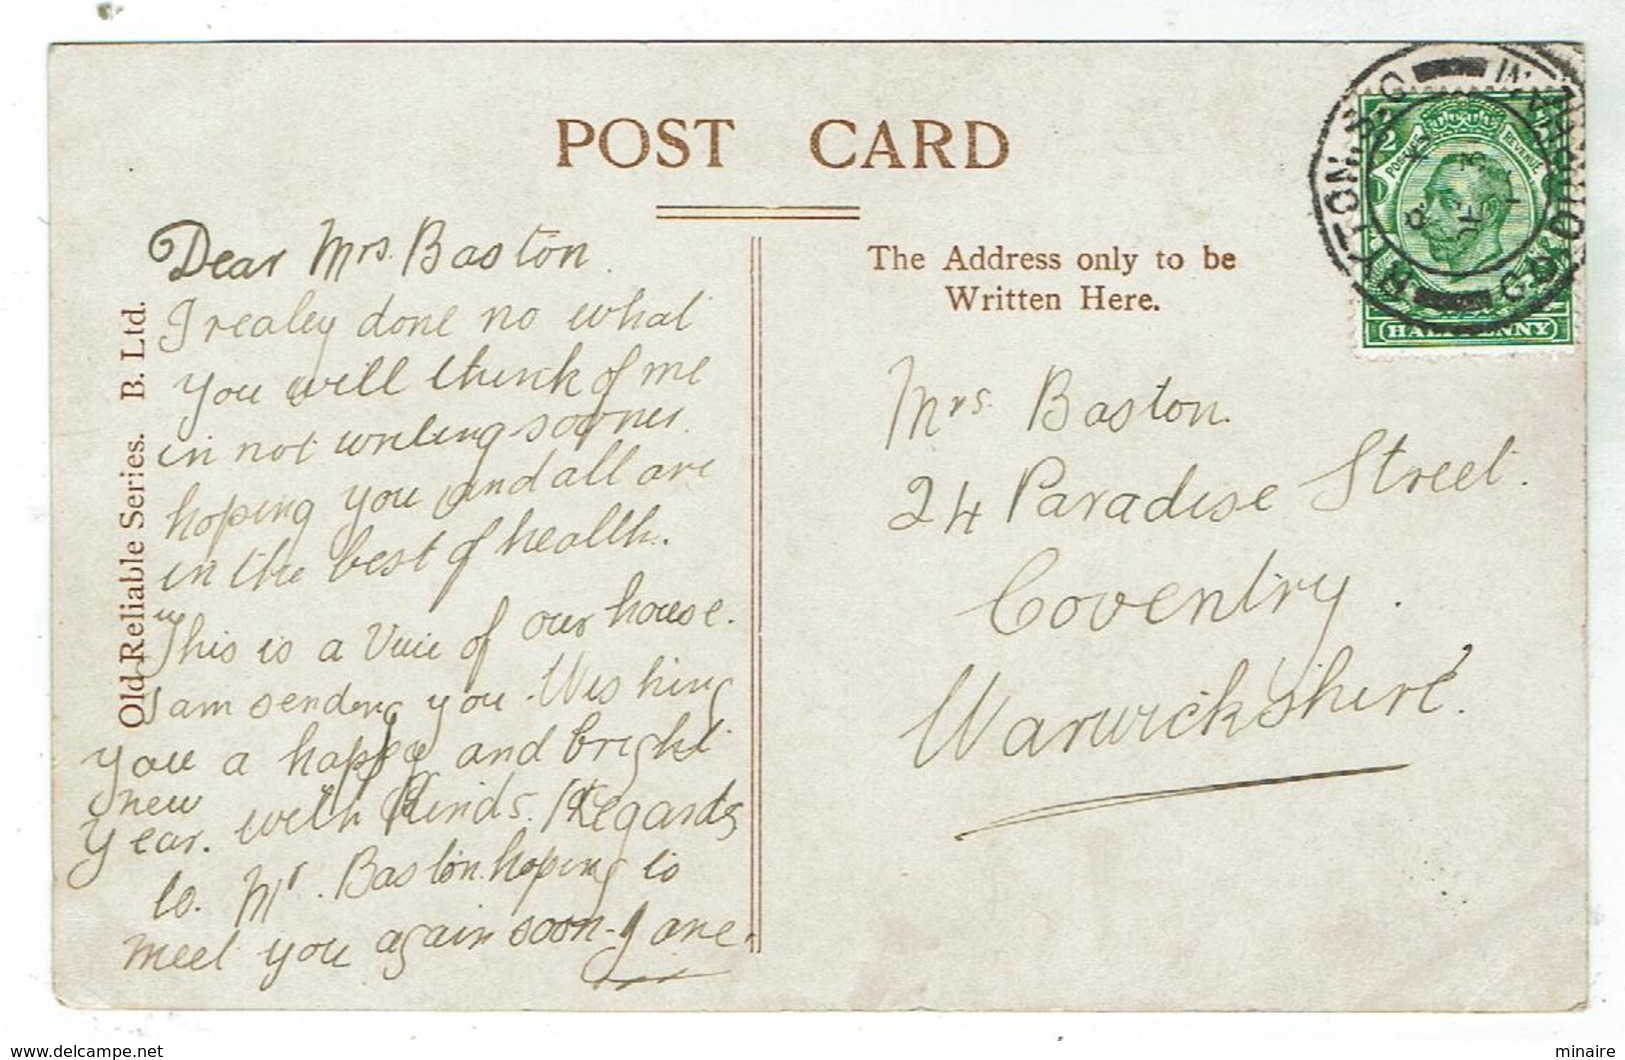 POST CARD
Old Reliable Series. B. Ltd.
Dear Mrs. Baston.
I realey done no what
you will think of me
in not writing sooner.
hoping you and all are
in the best of health.
"This is a Veiu of our house.
I am sending you. Wishing
you a happy and bright
new
year. with Kinds. Regards
to. Mr. Baston. hoping to
meet you again soon. Jane.
The Address only to be
Written Here.
Mrs. Baston.
24 Paradise Street.
Coventry.
Warwickshire.
POSTAGE REVENUE
HALFPENNY
delcampe.net
minaire